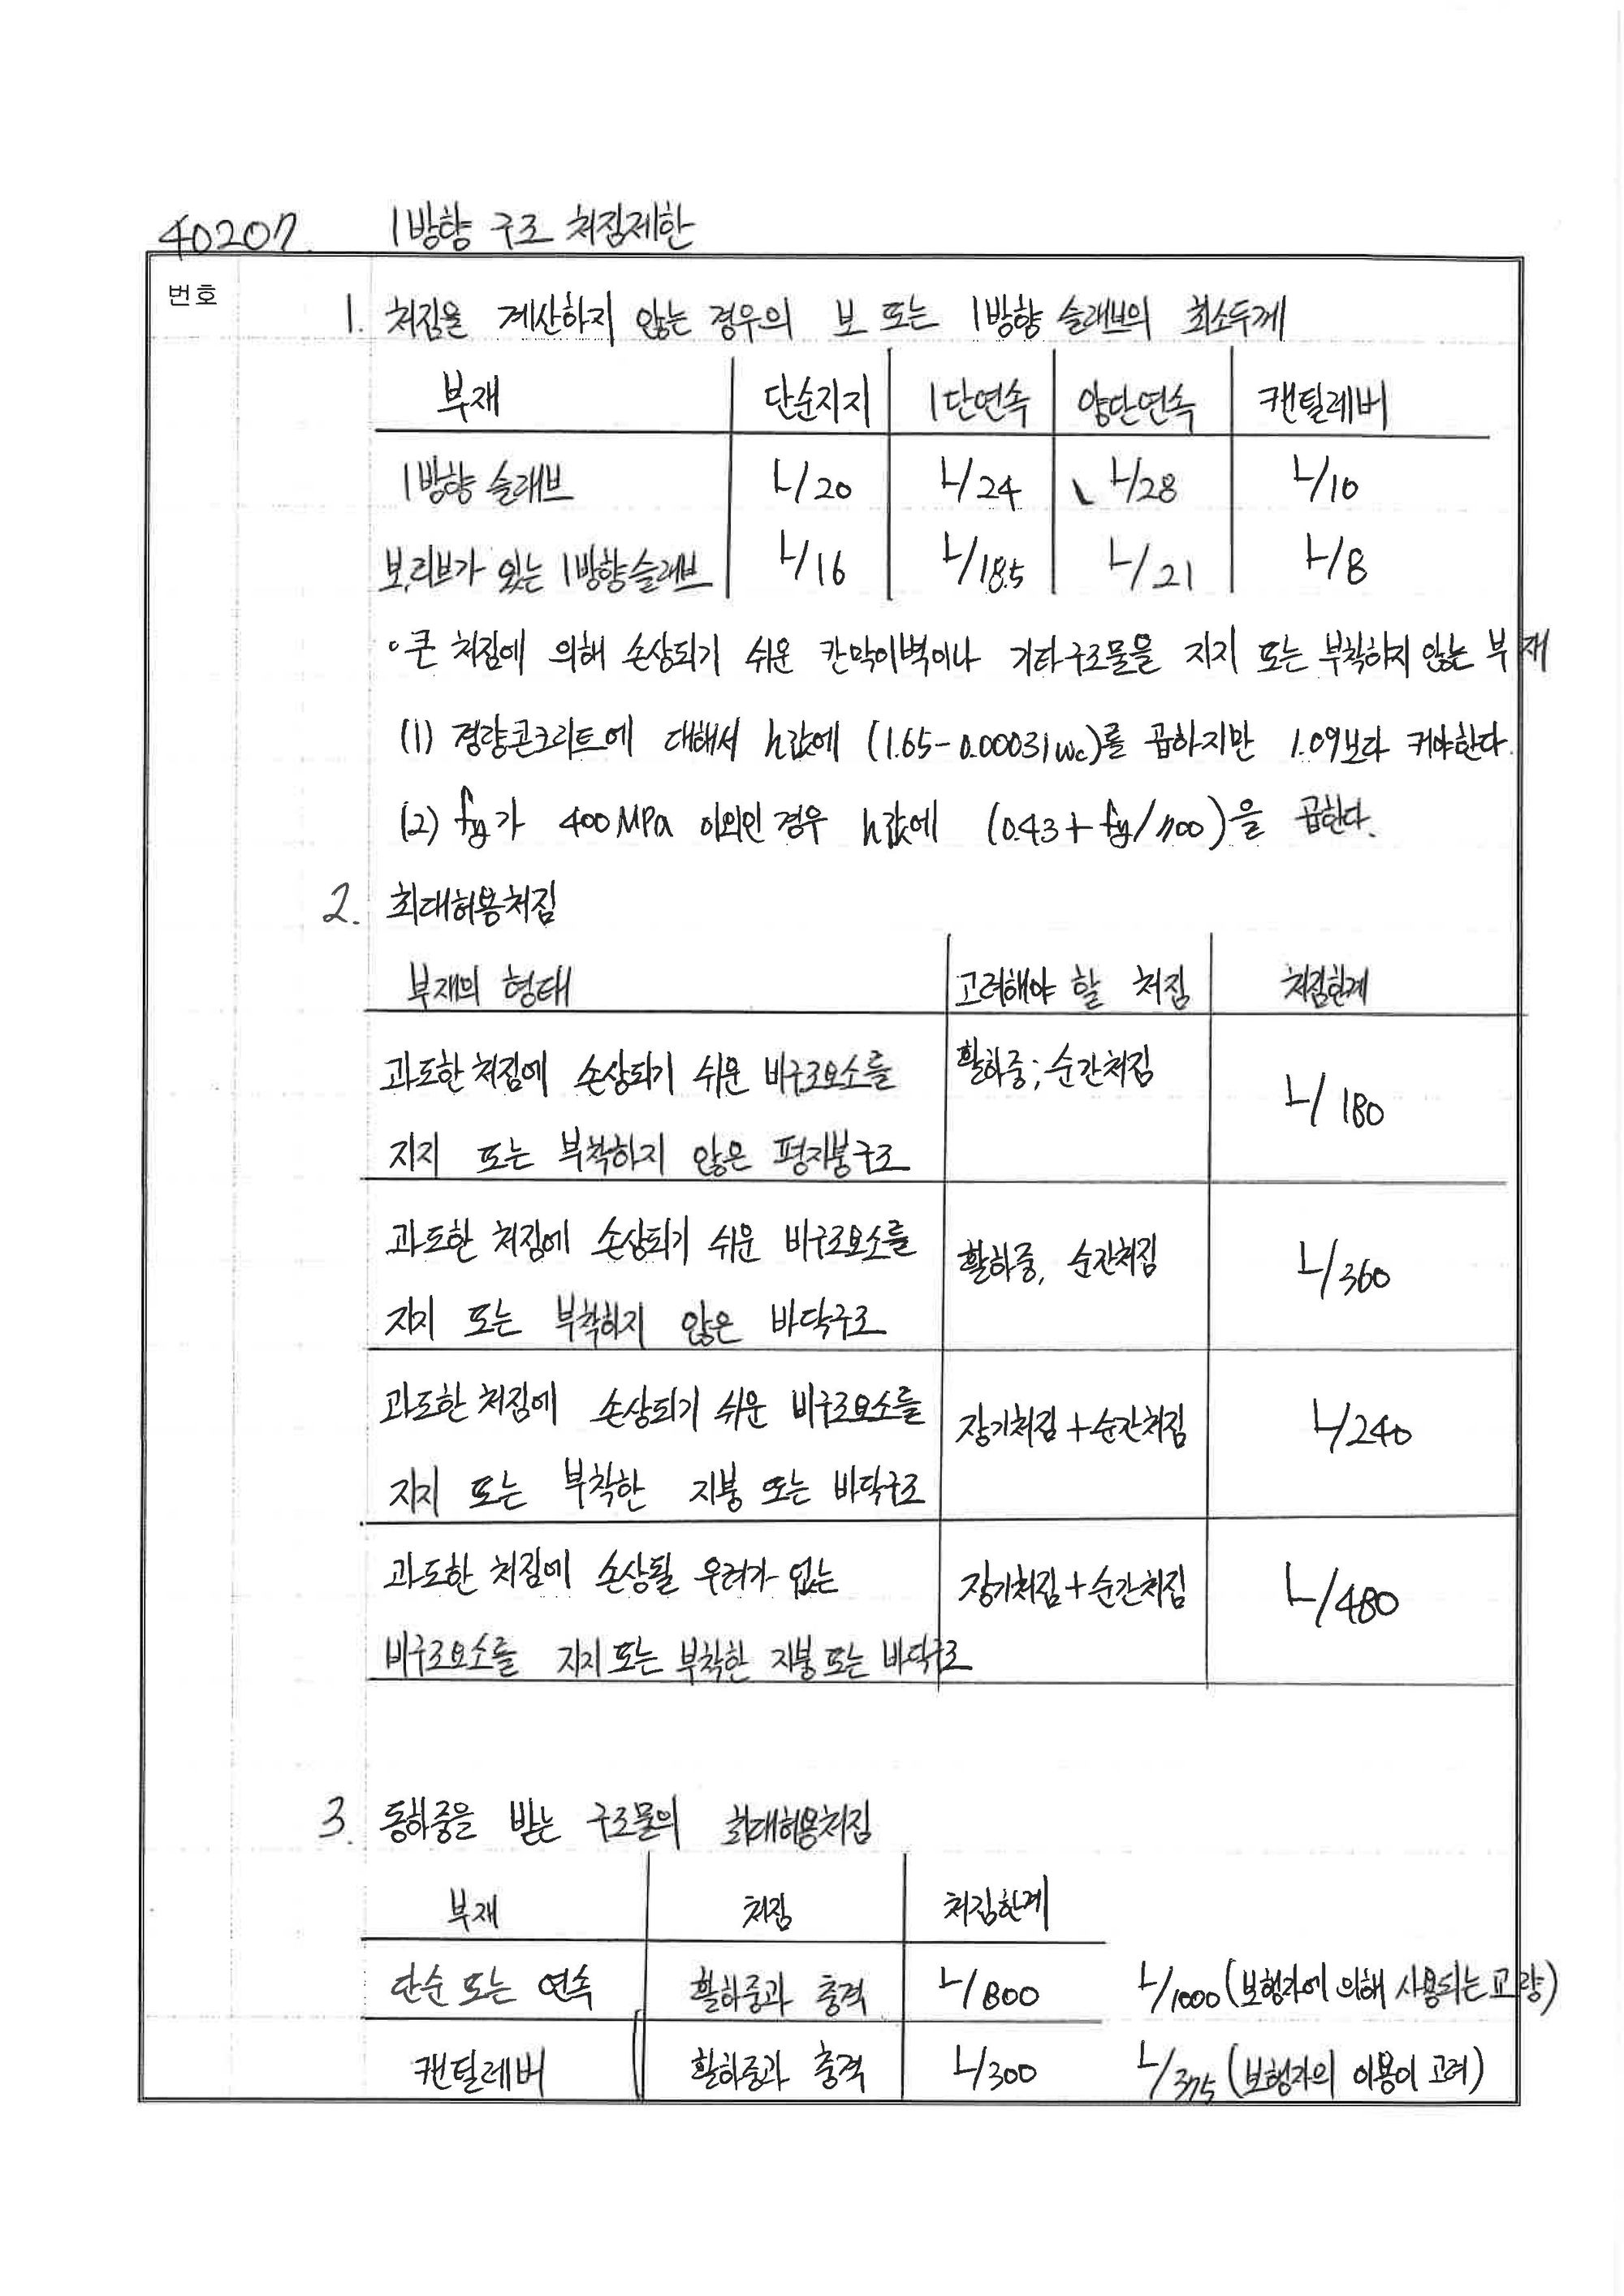 40207. 1방향 구조 처짐제한
번호
1. 처짐을 계산하지 않는 경우의 보 또는 1방향 슬래브의 최소두께
부재 단순지지 1단연속 양단연속 캔틸레버
1방향 슬래브 L/20 L/24 L/28 L/10
보,리브가 있는 1방향슬래브 L/16 L/18.5 L/21 L/8
◦큰 처짐에 의해 손상되기 쉬운 칸막이벽이나 기타구조물을 지지 또는 부착하지 않는 부재
(1) 경량콘크리트에 대해서 h값에 (1.65-0.00031wc)를 곱하지만 1.09보다 커야한다.
(2) fy가 400MPa 이외인 경우 h값에 (0.43+fy/700)을 곱한다.
2. 최대허용처짐
부재의 형태 고려해야 할 처짐 처짐한계
과도한 처짐에 손상되기 쉬운 비구조요소를
지지 또는 부착하지 않은 평지붕구조
활하중; 순간처짐 L/180
과도한 처짐에 손상되기 쉬운 비구조요소를
지지 또는 부착하지 않은 바닥구조
활하중, 순간처짐 L/360
과도한 처짐에 손상되기 쉬운 비구조요소를
지지 또는 부착한 지붕 또는 바닥구조
장기처짐+순간처짐 L/240
과도한 처짐에 손상될 우려가 없는
비구조요소를 지지 또는 부착한 지붕 또는 바닥구조
장기처짐+순간처짐 L/480
3. 동하중을 받는 구조물의 최대허용처짐
부재 처짐 처짐한계
단순 또는 연속 활하중과 충격 L/800 L/1000 (보행자에 의해 사용되는 교량)
캔틸레버 활하중과 충격 L/300 L/375 (보행자의 이용이 고려)